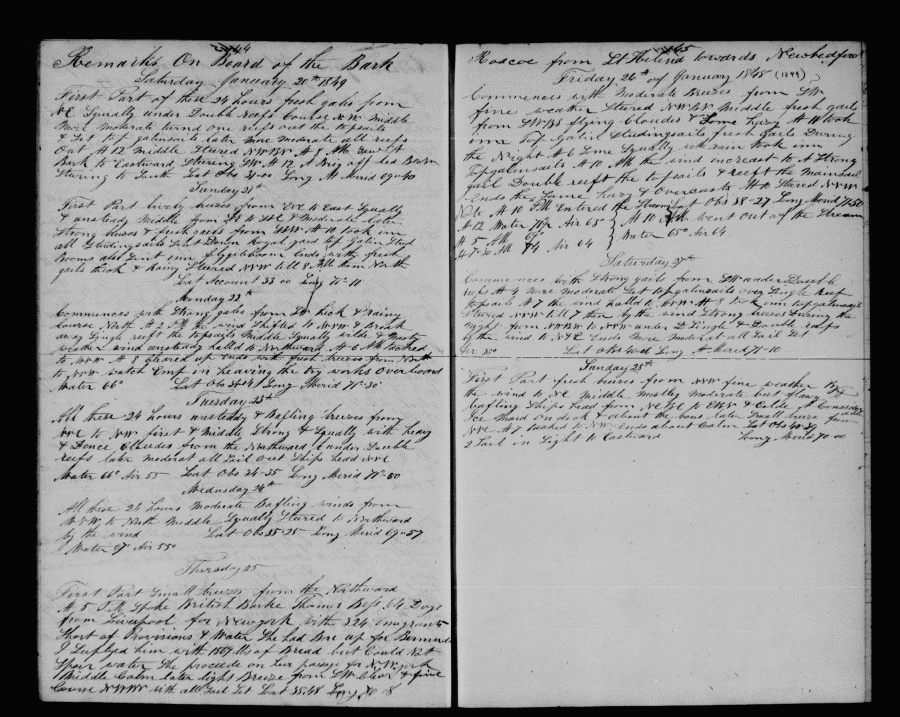 44
Remarks On Board of the Bark
Saturday January 20th 1849
First Part of these 24 hours fresh gales from
NE Squally under Double Reefs Course NW Middle
More moderate turnd one reef out the topsails
& Set top galansails later more moderate all reefs
Out At 12 Middle Stered NW At 8 AM
Bark to Eastward Stering SW At 12 A Brig off lee Beam
Stering to South Lat Obs 31-00 Long At Merid 69-40
Sunday 21st
First Part lively breezes from ENE to East Squally
& unsteady Middle from SE to & Moderate later
Strong breezes & fresh gales from SSW At 10 took inn
all Studingsails Sent Down Royal yard top Galin Stud
booms also Sent inn flying gibboom Ends with fresh
gails thick & Rainy Stered NNW till 8 AM then North
Lat Account 33 00 Long 71-10
Monday 22d
Commences with Strong gales from SW thick & Rainy
Course North At 2 PM the wind Shifted to WNW & Broak
away Single reeft the topsails Middle Squally wilde & Musty
weather wind unsteady halled to Northward At 4 AM tacked
to NNW At 8 cleared up Ends with fresh breezes from North
to NNW watch Emp in heaving the try works Overboard
Water 66° Lat Obs 34-41 Long Merid 71°-30
Tuesday 23d
All these 24 hours unsteady & Bafling breezes from
NNE to NW first & Middle Strong & Squally with heavy
& Dence Cloudes from the Northward under Double
reefs later moderat all Sail Out Ships head NNE
Water 66° Air 55 Lat Obs 34-35 Long Merid 71°-00
Wednesday 24th
All these 24 hours Moderate Bafling winds from
WNW to North Middle Squally Stured to Northward
by the wind Lat Obs 35-25 Long Merid 69-57
Water 67 Air 55°
Thursday 25
First Part Small breezes from the Northward
At 5 P.M. Spoke British Barke Thames Bess 64 Days
from Liverpool for Newyork with 324 Emigrants
Short of Provisions & Water She had Bre up for Bermuda
I Suplyed him with of Bread but Could Not
Spair water She proceede on her pasage for N. York
Middle Calm later light Breeze from SW Clear & fine
Course NWBW with all Sail Set Lat 35:48 Long 70
45
Roscoe from St Helena towards Newbedford
Friday 26th of January 1848 (1849)
Commences with Moderate Breezes from SW
fine weather Stered NWBW Middle fresh gails
from SWBS flying Cloudes & Some hazy At 10 took
inn Top Galin Studingsails fresh Gails During
the Night At 6 Some Squally with rain took inn
Topgalansails At 10 AM the wind increast to A Strong
gail Double reeft the topsails & Reeft the Mainsail
Ends the Same hazy & Overcast At 10 Stered NNW
Note At 10 PM Entered the Stream Lat Obs 38-27 Long Merid 71-50
At 12 Water 74 Air 65 At 10 AM went Out of the Stream
At 5 AM 69° Water 65° Air 64
At 7-30 AM 74 Air 64
Saturday 27th
Commences with Strong gails from SW under Double
reefs At 4 More Moderate Set topgalansails over Single Reef
topsails At 7 the wind halled to WNW At 8 took inn topgalansails
Stured NNW till 7 then by the wind Strong breezes During the
Night from NWBW to NNW under Single & Double reefs
by the wind to NNE Ends More Moderat all Sail Set
Air 35° Lat Obs Long At Merid 71-10
Sunday 28th
First Part fresh breezes from NNW fine weather by
the wind to NE Middle Mostley Moderate but flawy &
bafling Ships head from NE to & Colde A Considerable
Ice Made On deck & about the bows later Small breezes from
NNE At 7 tacked to NW Ends about Calm Lat Obs 40-39
2 Sail in Sight to Eastward Long Merid 70-00